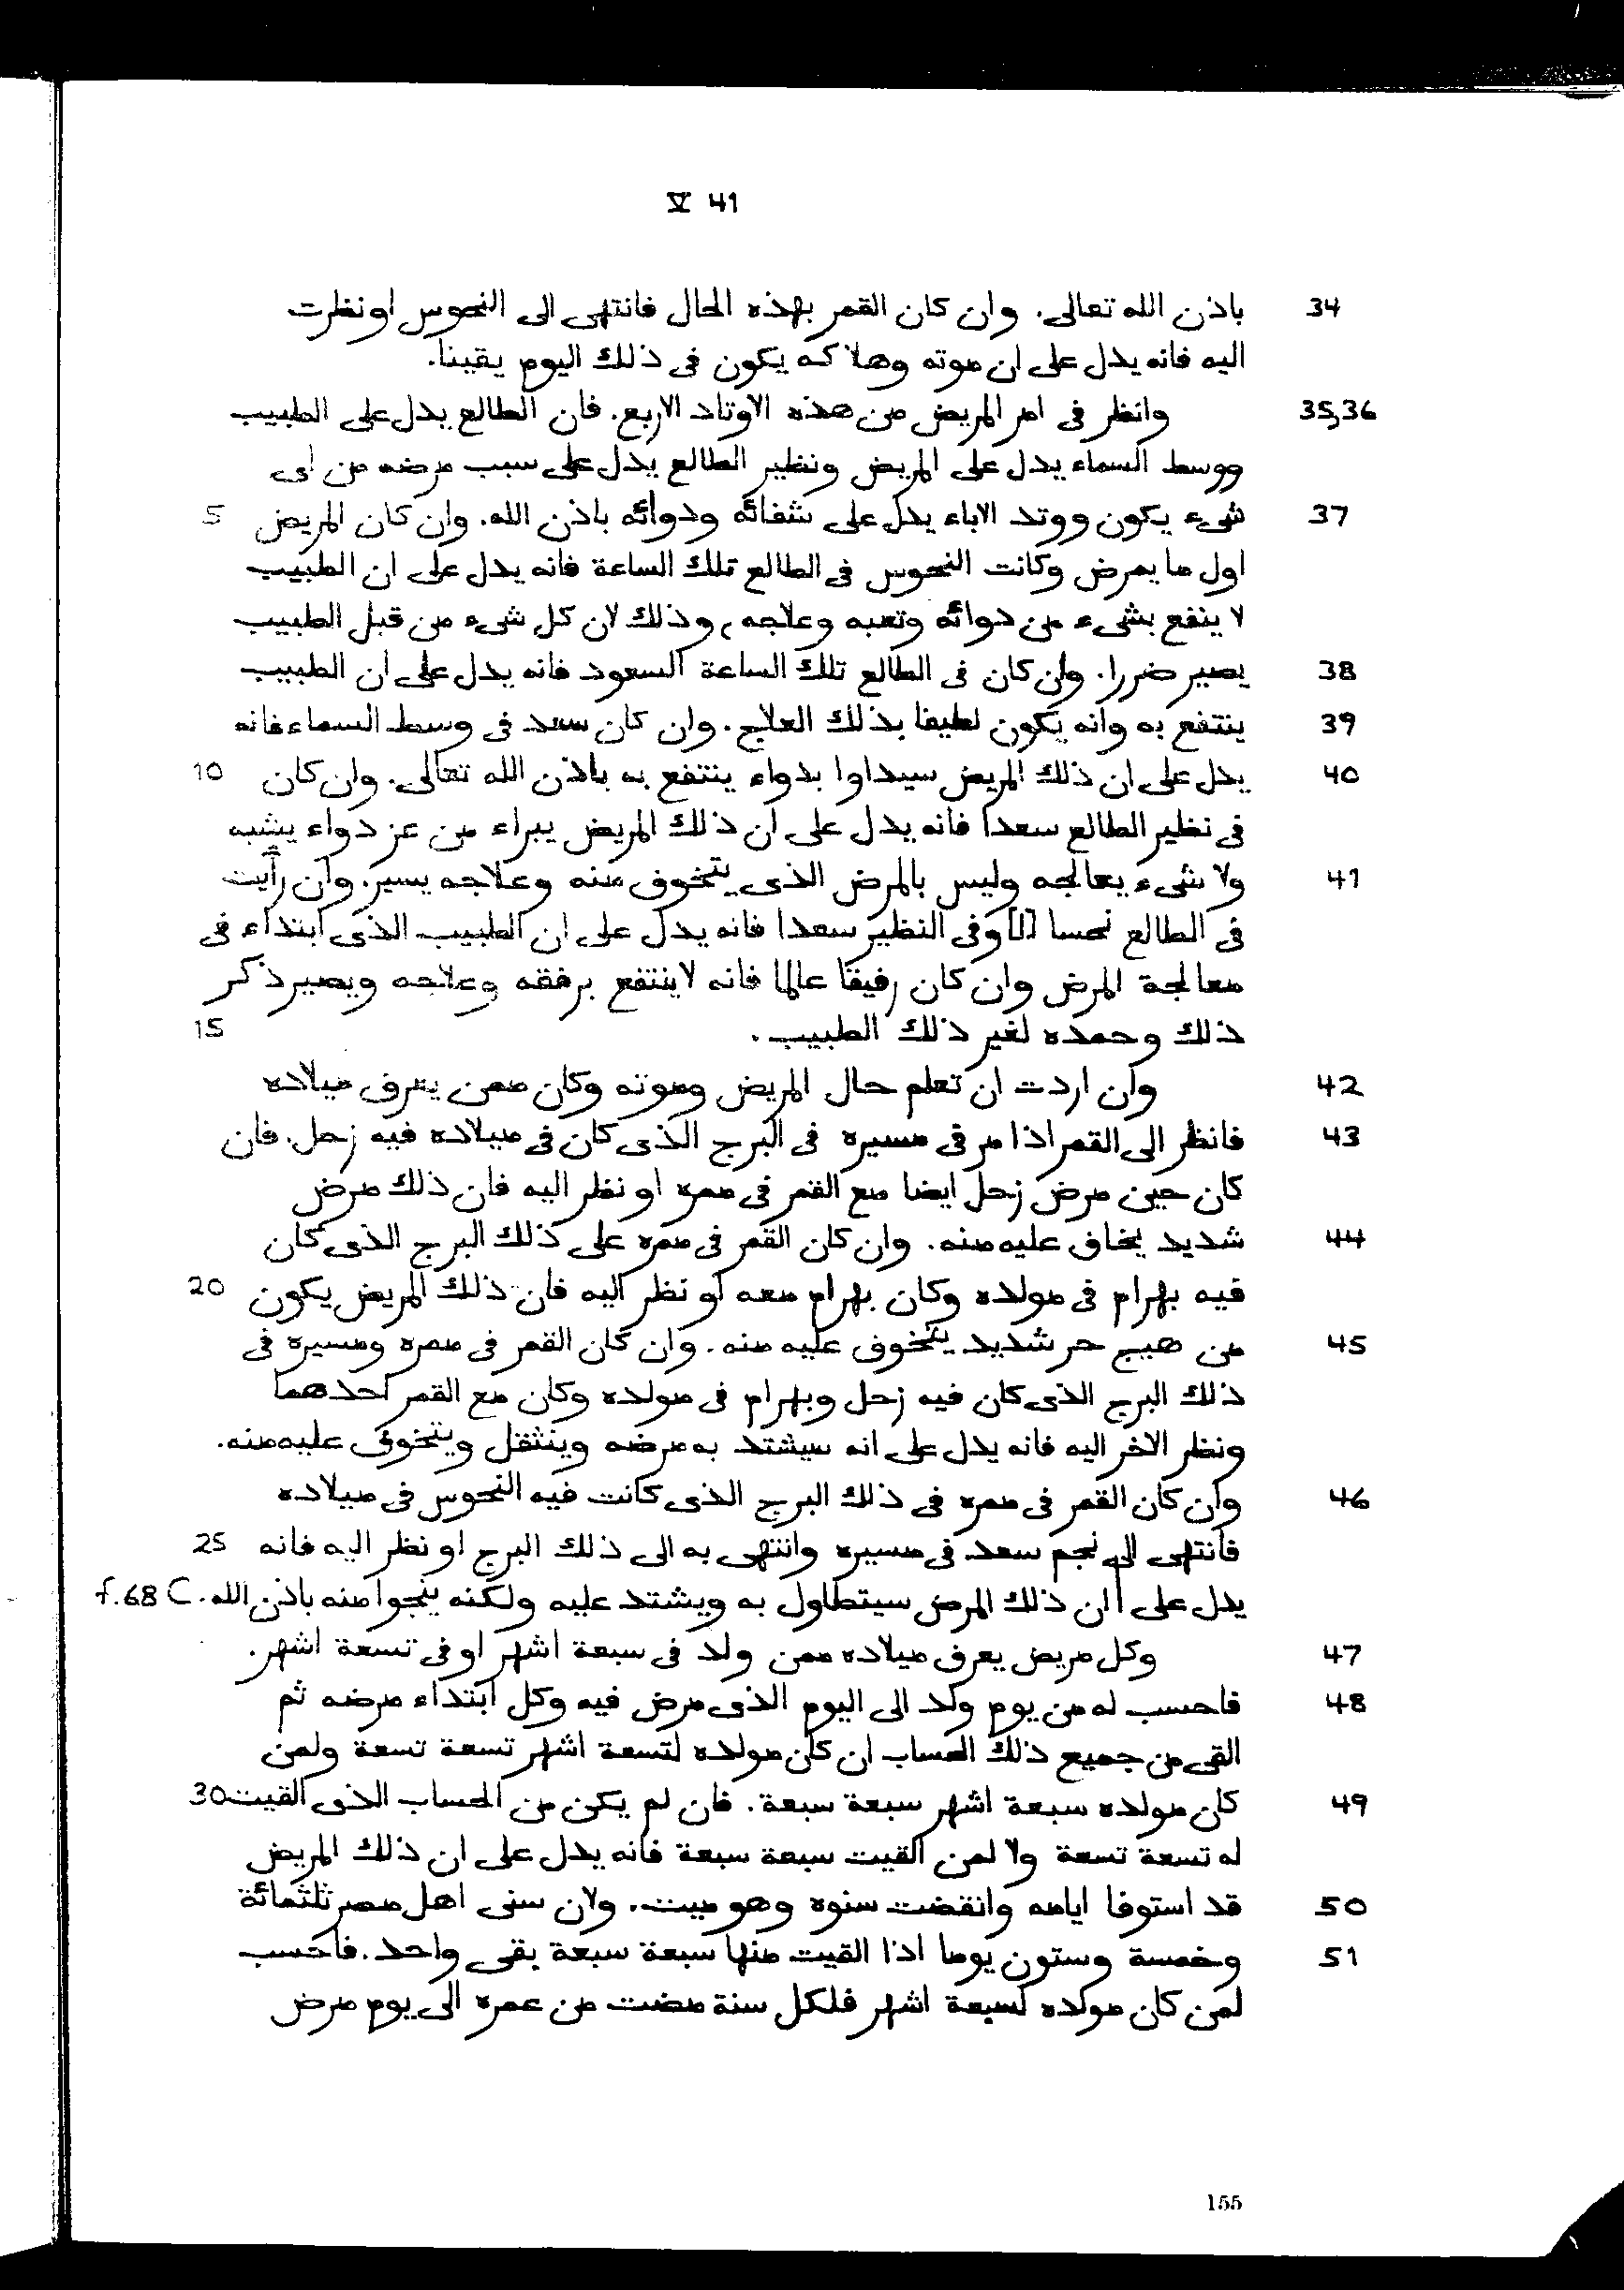 V 41
34 باذن الله تعالى. وان كان القمر بهذه الحال فانتهى الى النحوس او نظرت
اليه فانه يدل على ان موته وهلاكه يكون فى ذلك اليوم يقينا.
35,36 وانظر فى امر المريض من هذه الاوتاد الاربع. فان الطالع يدل على الطبيب
ووسط السماء يدل على المريض ونظير الطالع يدل على سبب مرضه من اى
37 شىء يكون ووتد الاباء يدل على شفائه ودوائه باذن الله. وان كان المريض 5
اول ما يمرض وكانت النحوس فى الطالع تلك الساعة فانه يدل على ان الطبيب
لا ينفع بشىء من دوائه وتعبه وعلاجه، وذلك لان كل شىء من قبل الطبيب
38 يصير ضررا. وان كان فى الطالع تلك الساعة السعود فانه يدل على ان الطبيب
39 ينتفع به وانه يكون لطيفا بذلك العلاج. وان كان سعد فى وسط السماء فانه
40 يدل على ان ذلك المريض سيداوا بدواء ينتفع به باذن الله تعالى. وان كان 10
فى نظير الطالع سعدا فانه يدل على ان ذلك المريض يبراء من عز دواء يشبه
41 ولا شىء يعالجه وليس بالمرض الذى يتخوف منه وعلاجه يسير. وان رأيت
فى الطالع نحسا [ا]وفى النظير سعدا فانه يدل على ان الطبيب الذى ابتداء فى
معالجة المرض وان كان رفيقا عالما فانه لا ينتفع برفقه وعلاجه ويصير ذكر
ذلك وحمده لغير ذلك الطبيب. 15
42 وان اردت ان تعلم حال المريض وموته وكان ممن يعرف ميلاده
43 فانظر الى القمر اذا مر فى مسيره فى البرج الذى كان فى ميلاده فيه زحل. فان
كان حين مرض زحل ايضا مع القمر فى ممره او نظر اليه فان ذلك مرض
44 شديد يخاف عليه منه. وان كان القمر فى ممره على ذلك البرج الذى كان
فيه بهرام فى مولده وكان بهرام معه او نظر اليه فان ذلك المريض يكون 20
45 من هيج حر شديد يتخوف عليه منه. وان كان القمر فى ممره ومسيره فى
ذلك البرج الذى كان فيه زحل وبهرام فى مولده وكان مع القمر احدهما
ونظر الاخر اليه فانه يدل على انه سيشتد به مرضه وينثقل ويتخوف عليه منه.
46 وان كان القمر فى ممره فى ذلك البرج الذى كانت فيه النحوس فى ميلاده
فانتهى الى نجم سعد فى مسيره وانتهى به الى ذلك البرج او نظر اليه فانه 25
يدل على | ان ذلك المرض سيتطاول به ويشتد عليه ولكنه ينجوا منه باذن الله. f.68 C
47 وكل مريض يعرف ميلاده ممن ولد فى سبعة اشهر او فى تسعة اشهر.
48 فاحسب له من يوم ولد الى اليوم الذى مرض فيه وكل ابتداء مرضه ثم
القى من جميع ذلك الحساب ان كان مولده لتسعة اشهر تسعة تسعة ولمن
49 كان مولده سبعة اشهر سبعة سبعة. فان لم يكن من الحساب الذى القيت 30
له تسعة تسعة ولا لمن القيت سبعة سبعة فانه يدل على ان ذلك المريض
50 قد استوفا ايامه وانقضت سنوه وهو ميت. ولان سنى اهل مصر ثلثمائة
51 وخمسة وستون يوما اذا القيت منها سبعة سبعة بقى واحد. فاحسب
لمن كان مولده لسبعة اشهر فلكل سنة مضت من عمره الى يوم مرض
155